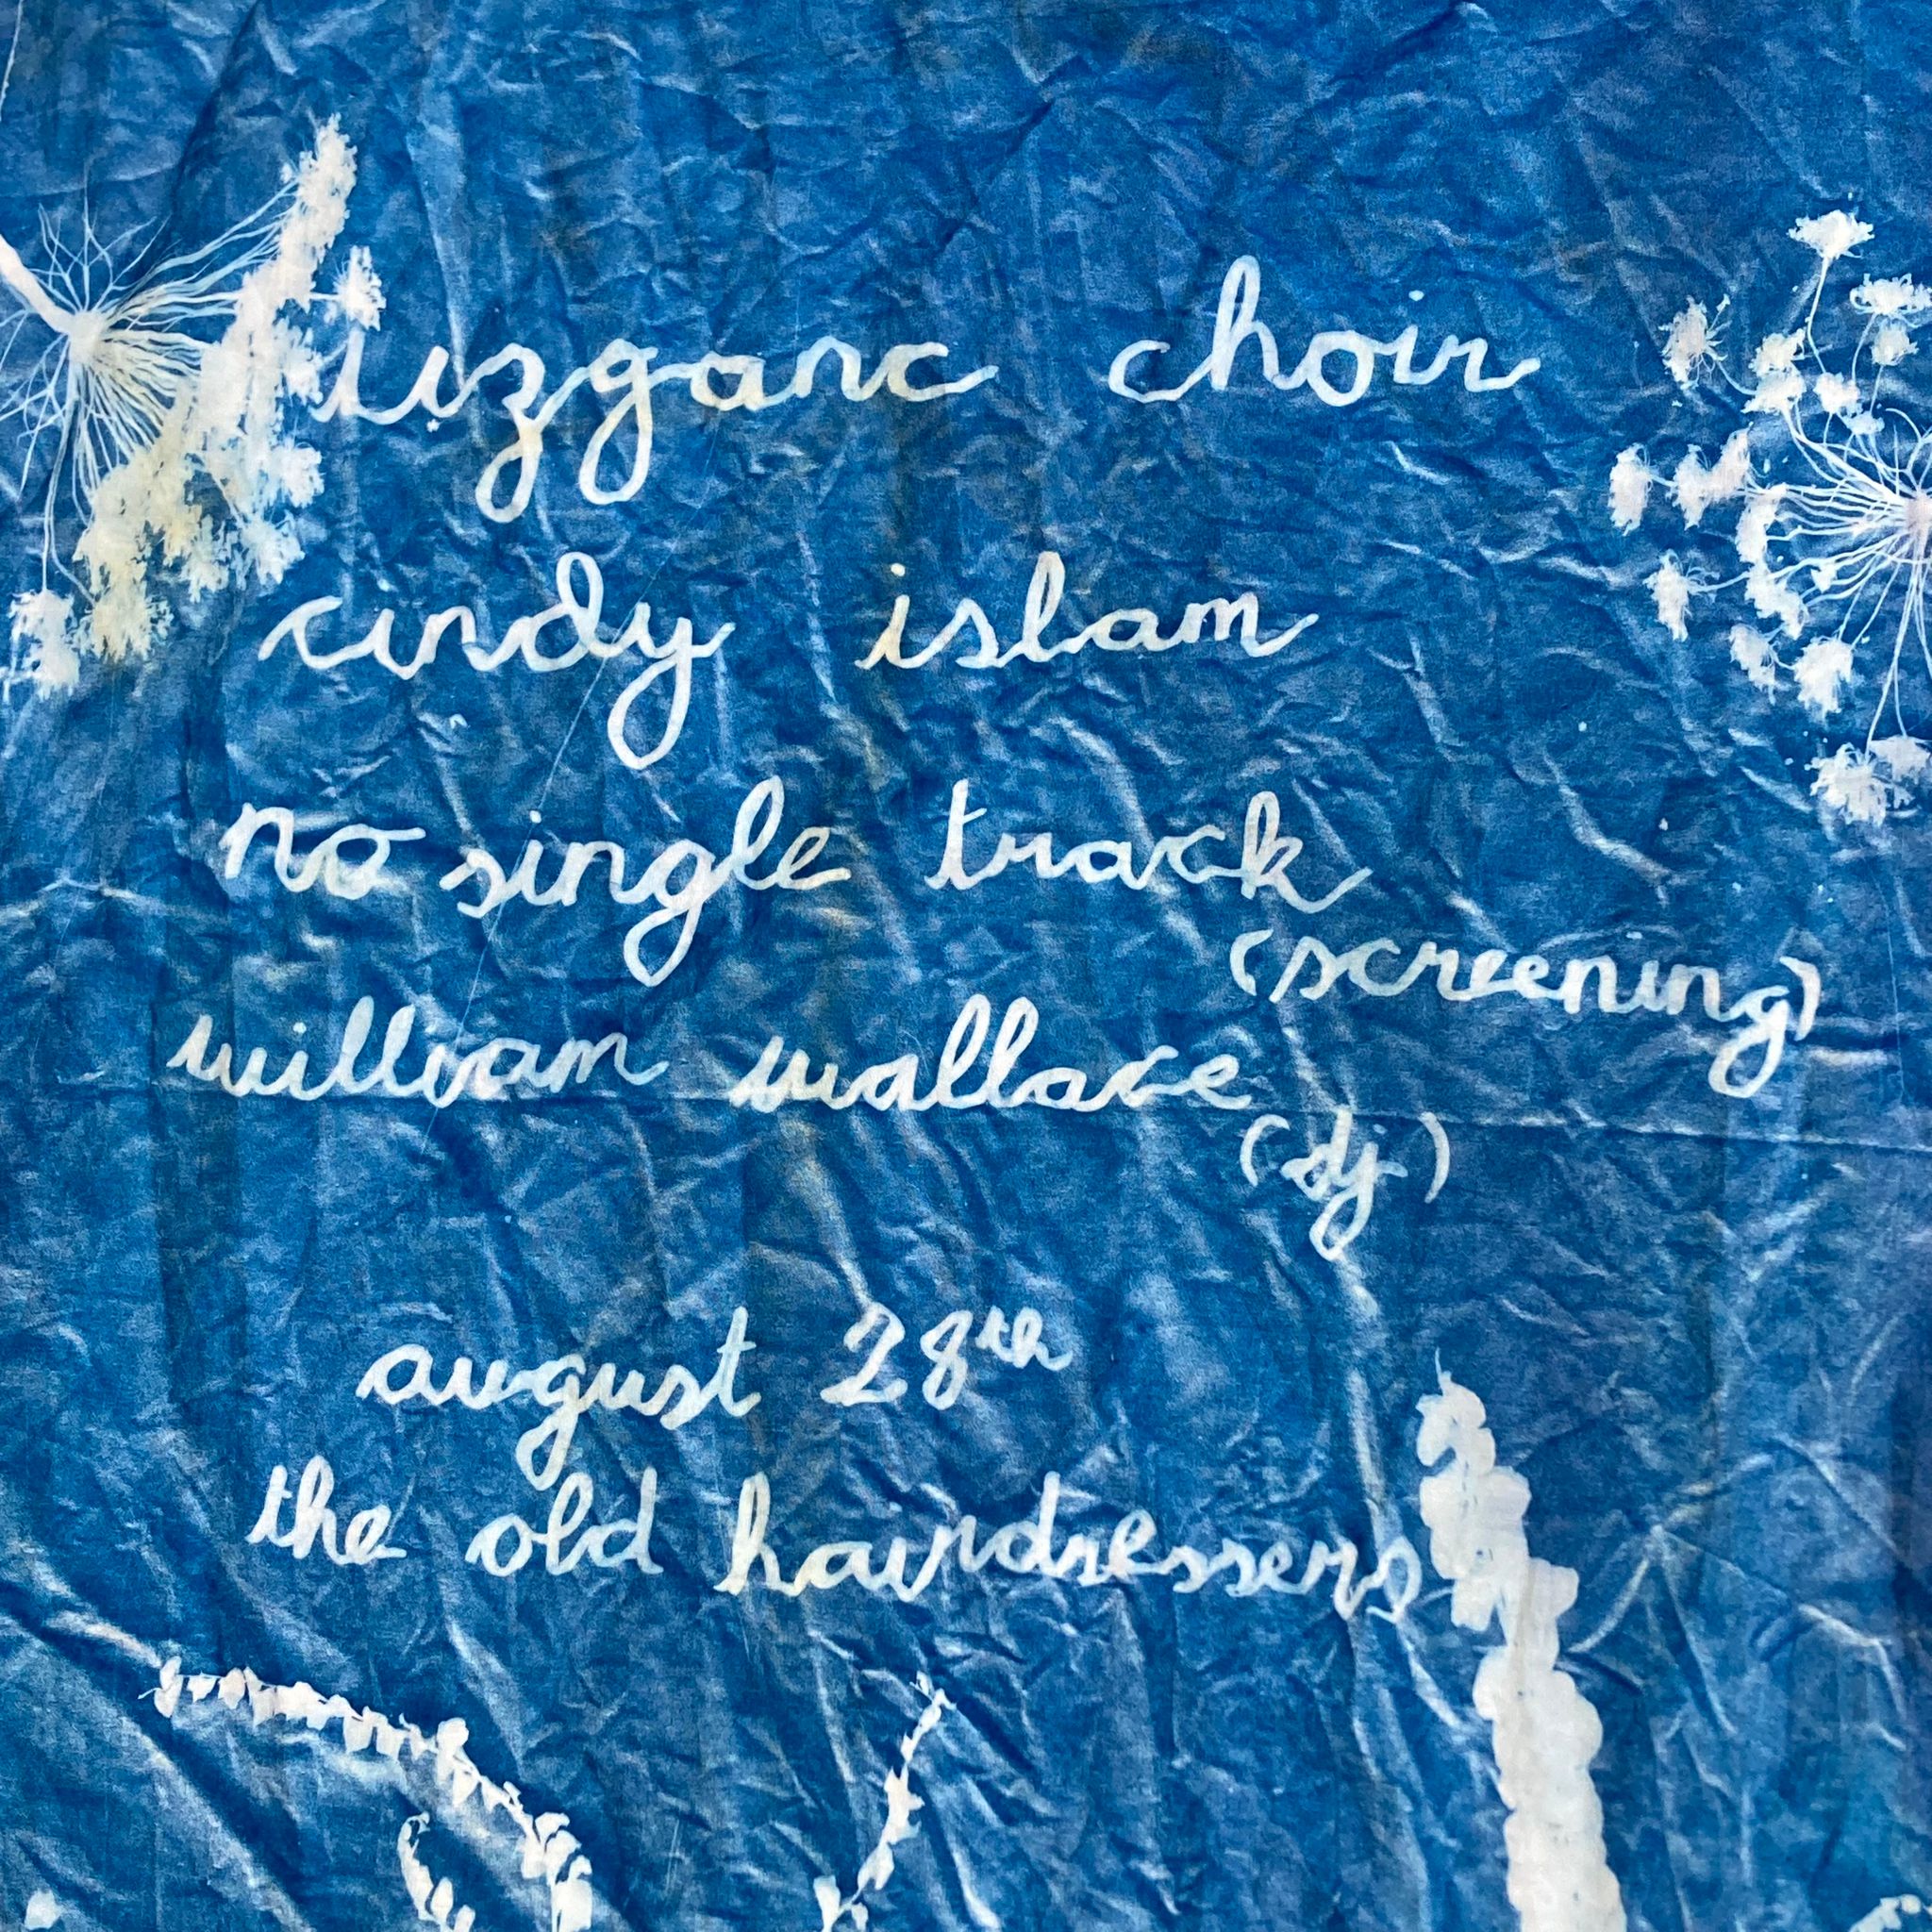 choir
cindy islam
no single track
(screening)
william wallace
(dj)
august 28th
the old hairdressers